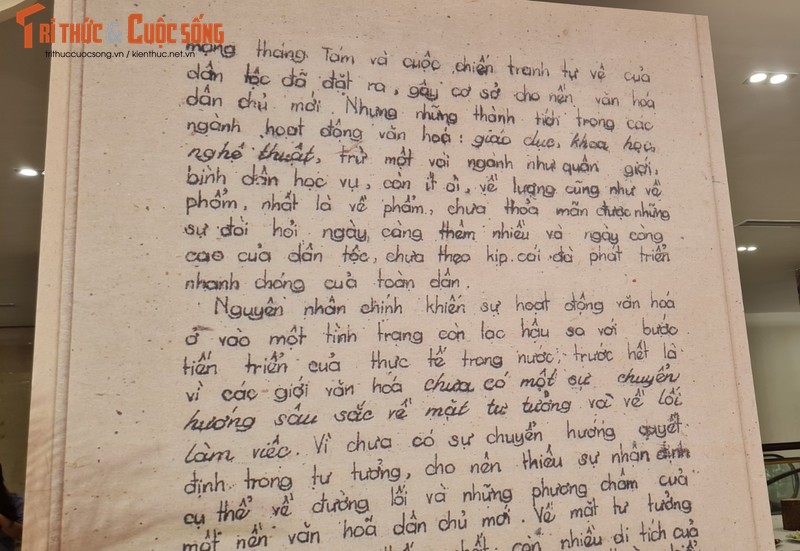 TRI THỨC & CUỘC SỐNG
trithuccuocsong.vn / kienthuc.net.vn
mạng tháng Tám và cuộc chiến tranh tự vệ của
dân tộc đã đặt ra, gây cơ sở cho nền văn hóa
dân chủ mới. Nhưng những thành tích trong các
ngành hoạt động văn hoá: giáo dục, khoa học,
nghệ thuật, trừ một vài ngành như quân giới,
bình dân học vụ, còn ít ỏi, về lượng cũng như về
phẩm, nhất là về phẩm, chưa thỏa mãn được những
sự đòi hỏi ngày càng thêm nhiều và ngày càng
cao của dân tộc, chưa theo kịp cái đà phát triển
nhanh chóng của toàn dân.
Nguyên nhân chính khiến sự hoạt động văn hoá
ở vào một tình trạng còn lạc hậu so với bước
tiến triển của thực tế trong nước, trước hết là
vì các giới văn hoá chưa có một sự chuyển
hướng sâu sắc về mặt tư tưởng và về lối
làm việc. Vì chưa có sự chuyển hướng quyết
định trong tư tưởng, cho nên thiếu sự nhận định
cụ thể về đường lối và những phương châm của
một nền văn hoá dân chủ mới. Về mặt tư tưởng
nhất còn nhiều di tích của